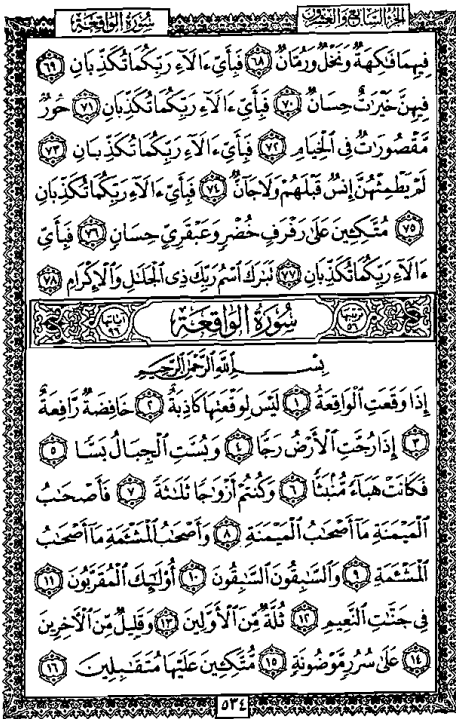 الجزء السابع والعشرون
سورة الواقعة
فِيهِمَا فَٰكِهَةٌ وَنَخْلٌ وَرُمَّانٌ ﴿٦٨﴾ فَبِأَىِّ ءَالَآءِ رَبِّكُمَا تُكَذِّبَانِ ﴿٦٩﴾
فِيهِنَّ خَيْرَٰتٌ حِسَانٌ ﴿٧٠﴾ فَبِأَىِّ ءَالَآءِ رَبِّكُمَا تُكَذِّبَانِ ﴿٧١﴾ حُورٌ
مَّقْصُورَٰتٌ فِى ٱلْخِيَامِ ﴿٧٢﴾ فَبِأَىِّ ءَالَآءِ رَبِّكُمَا تُكَذِّبَانِ ﴿٧٣﴾
لَمْ يَطْمِثْهُنَّ إِنسٌ قَبْلَهُمْ وَلَا جَآنٌّ ﴿٧٤﴾ فَبِأَىِّ ءَالَآءِ رَبِّكُمَا تُكَذِّبَانِ
﴿٧٥﴾ مُتَّكِـِٔينَ عَلَىٰ رَفْرَفٍ خُضْرٍ وَعَبْقَرِىٍّ حِسَانٍ ﴿٧٦﴾ فَبِأَىِّ
ءَالَآءِ رَبِّكُمَا تُكَذِّبَانِ ﴿٧٧﴾ تَبَٰرَكَ ٱسْمُ رَبِّكَ ذِى ٱلْجَلَٰلِ وَٱلْإِكْرَامِ ﴿٧٨﴾
ترتيبها ٥٦ سُورَةُ الْوَاقِعَةِ آياتها ٩٦
بِسْمِ ٱللَّهِ ٱلرَّحْمَٰنِ ٱلرَّحِيمِ
إِذَا وَقَعَتِ ٱلْوَاقِعَةُ ﴿١﴾ لَيْسَ لِوَقْعَتِهَا كَاذِبَةٌ ﴿٢﴾ خَافِضَةٌ رَّافِعَةٌ
﴿٣﴾ إِذَا رُجَّتِ ٱلْأَرْضُ رَجًّا ﴿٤﴾ وَبُسَّتِ ٱلْجِبَالُ بَسًّا ﴿٥﴾
فَكَانَتْ هَبَآءً مُّنۢبَثًّا ﴿٦﴾ وَكُنتُمْ أَزْوَٰجًا ثَلَٰثَةً ﴿٧﴾ فَأَصْحَٰبُ
ٱلْمَيْمَنَةِ مَآ أَصْحَٰبُ ٱلْمَيْمَنَةِ ﴿٨﴾ وَأَصْحَٰبُ ٱلْمَشْـَٔمَةِ مَآ أَصْحَٰبُ
ٱلْمَشْـَٔمَةِ ﴿٩﴾ وَٱلسَّٰبِقُونَ ٱلسَّٰبِقُونَ ﴿١٠﴾ أُو۟لَٰٓئِكَ ٱلْمُقَرَّبُونَ ﴿١١﴾
فِى جَنَّٰتِ ٱلنَّعِيمِ ﴿١٢﴾ ثُلَّةٌ مِّنَ ٱلْأَوَّلِينَ ﴿١٣﴾ وَقَلِيلٌ مِّنَ ٱلْـَٔاخِرِينَ
﴿١٤﴾ عَلَىٰ سُرُرٍ مَّوْضُونَةٍ ﴿١٥﴾ مُّتَّكِـِٔينَ عَلَيْهَا مُتَقَٰبِلِينَ ﴿١٦﴾
٥٣٤